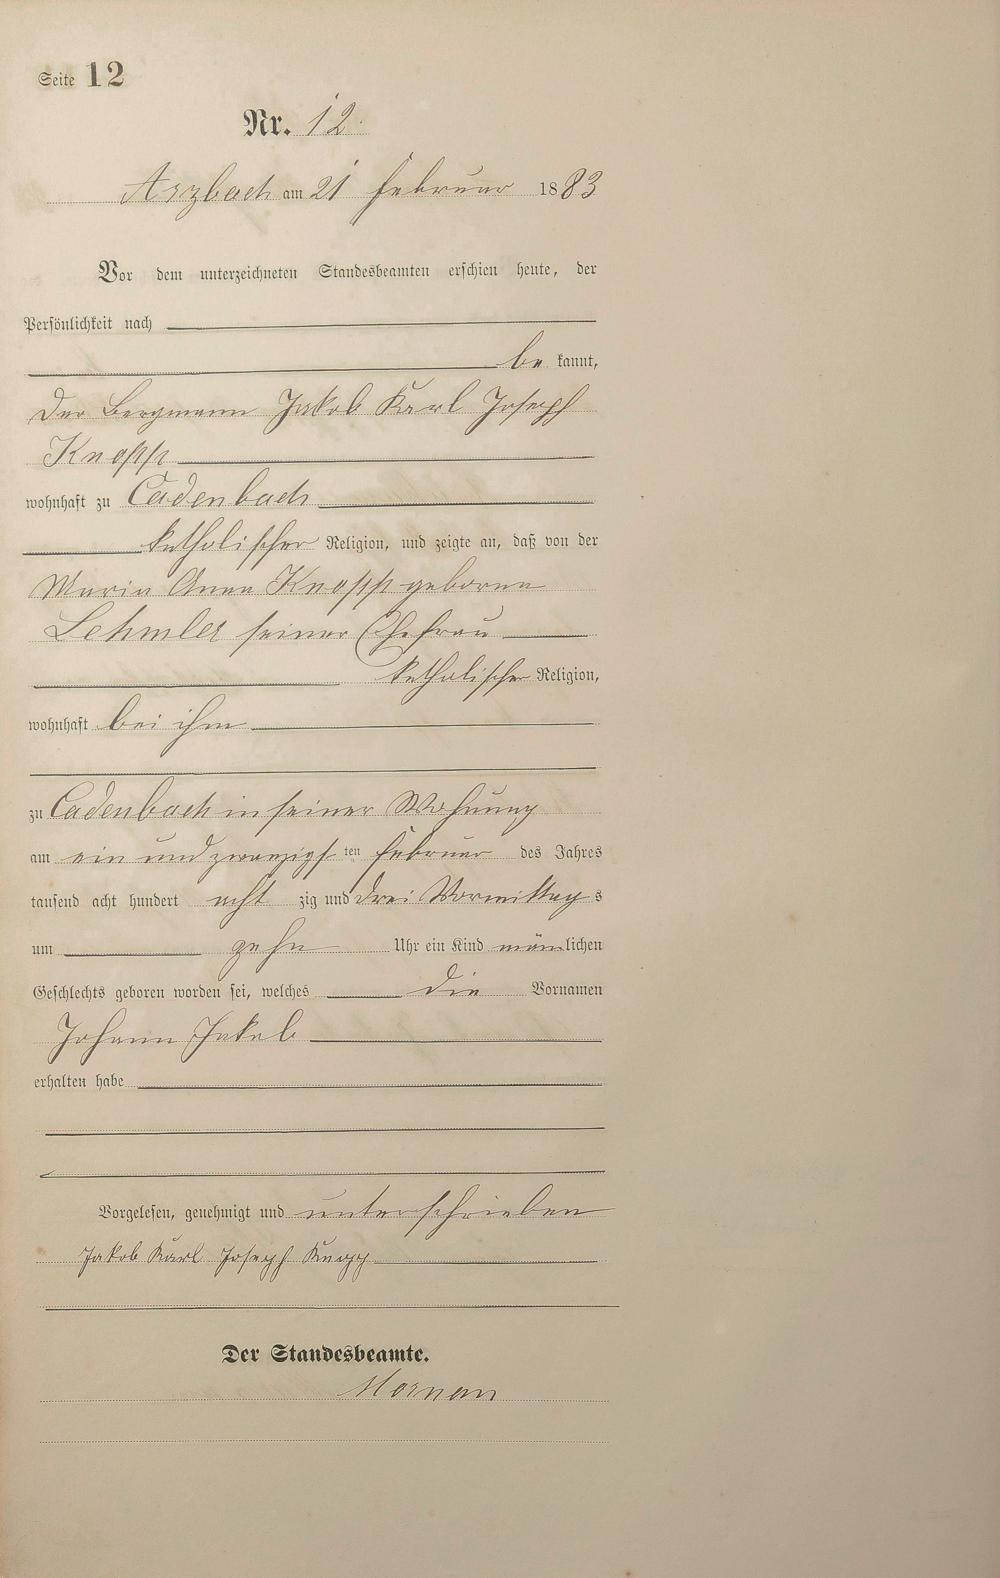 Seite 12
Nr. 12.
Arzbach am 21 Februar 1883
Vor dem unterzeichneten Standesbeamten erschien heute, der
Persönlichkeit nach
be kannt,
der Bergmann Jakob Karl Joseph
Knopp
wohnhaft zu Cadenbach
katholischer Religion, und zeigte an, daß von der
Maria Anna Knopp geborne
seiner Ehefrau
katholischer Religion,
wohnhaft bei ihm
zu Cadenbach in seiner Wohnung
am ein und zwanzigsten Februar des Jahres
tausend acht hundert acht zig und drei Vormittags
um zehn Uhr ein Kind mänlichen
Geschlechts geboren worden sei, welches die Vornamen
Johann Jakob
erhalten habe
Vorgelesen, genehmigt und unterschrieben
Jakob Karl Joseph Knopp
Der Standesbeamte.